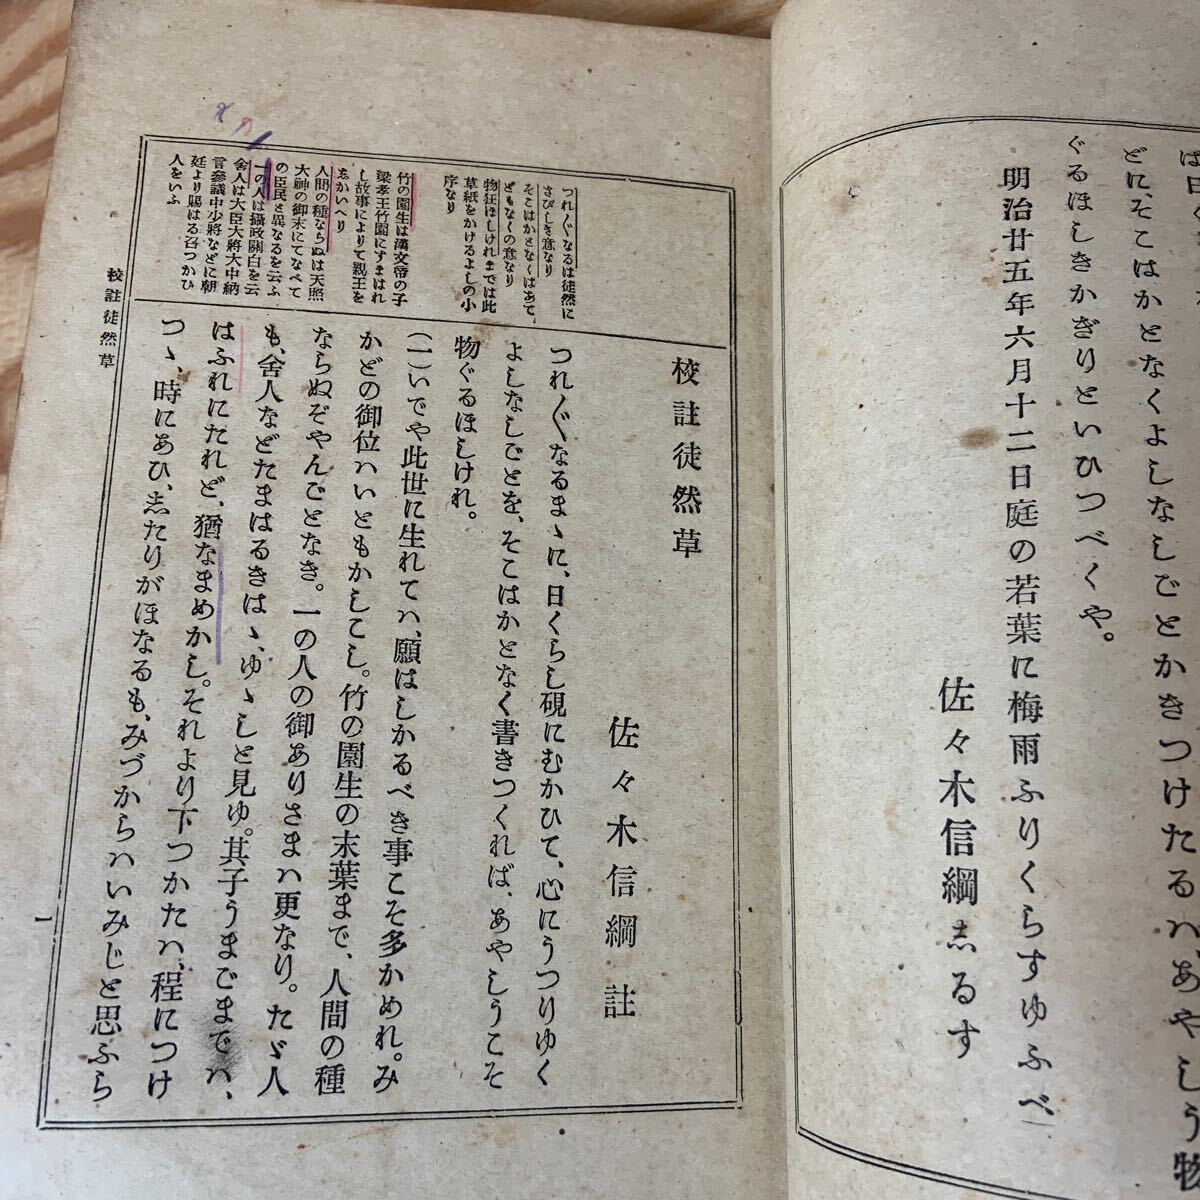 どに、そこはかとなくよしなしごとかきつけたるハ、あやしう物
ぐるほしきかぎりといひつべくや。
明治廿五年六月十二日庭の若葉に梅雨ふりくらすゆふべ
佐々木信綱志るす
校註徒然草
佐々木信綱註
つれ〴〵なるまゝに、日くらし硯にむかひて、心にうつりゆく
よしなしごとを、そこはかとなく書きつくれば、あやしうこそ
物ぐるほしけれ。
(一)いでや此世に生れてハ、願はしかるべき事こそ多かめれ。み
かどの御位ハいともかしこし。竹の園生の末葉まで、人間の種
ならぬぞやんごとなき。一の人の御ありさまハ更なり。たゞ人
も、舍人などたまはるきはゝ、ゆゝしと見ゆ。其子うまごまでハ、
はふれにたれど、猶なまめかし。それより下つかたハ、程につけ
つゝ、時にあひ、志たりがほなるも、みづからハいみじと思ふら
つれ〴〵なるは徒然に
さびしき意なり
そこはかとなくはあて
どもなくの意なり
物狂ほしけれまでは此
草紙をかけるよしの小
序なり
竹の園生は漢文帝の子
梁孝王竹園にすまはれ
し故事によりて親王を
志かいへり
人間の種ならぬは天照
大神の御末にてなべて
の臣民と異なるを云ふ
一の人は攝政關白を云
舍人は大臣大將大中納
言參議中少將などに朝
廷より賜はる召つかひ
人をいふ
校註徒然草
一